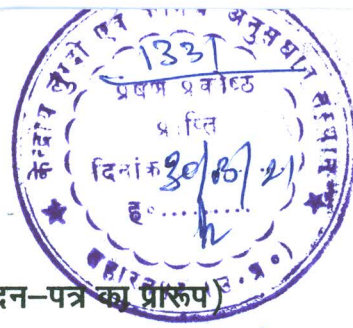 केन्द्रीय लुग्दी एवं कागज अनुसंधान संस्थान
1331
प्रेषण प्रकोष्ठ
प्राप्ति
दिनांक 30/08/21
ह०..........
सहारनपुर (उ० प्र०)
दन–पत्र का प्रारूप)